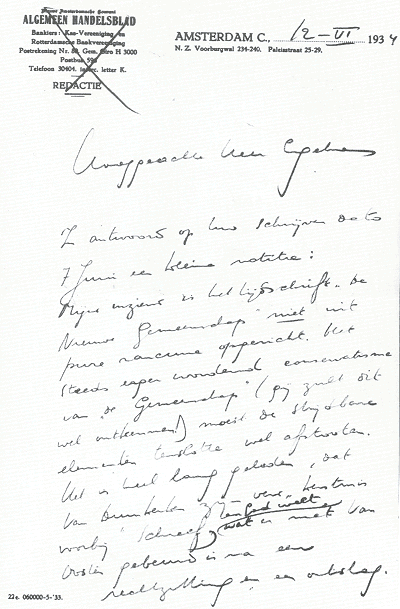 Nieuwe Amsterdamsche Courant
ALGEMEEN HANDELSBLAD
Bankiers: Kas-Vereeniging en
Rotterdamsche Bankvereeniging
Postrekening Nr. Gem. Giro H 3000
Postbus
Telefoon 30404, letter K.
REDACTIE
AMSTERDAM C., 12-VI 1934
N. Z. Voorburgwal 234-240. Paleisstraat 25-29.
Hooggeachte Heer Engelman
In antwoord op Uw schrijven dato
7 Juni een kleine notitie:
Mijns inziens is het tijdschrift "De
Nieuwe Gemeenschap" niet uit
pure rancune opgericht. Het
steeds erger wordend conservatisme
van "De Gemeenschap" (gij zult dit
wel ontkennen!) moest de strijdbare
elementen tenslotte wel afstooten.
Het is heel lang geleden, dat
Van Duinkerken
voorbij" schreef, wat is met Van
Oosten gebeurd is na een
rechtzitting en een ontslag.
22e. 060000-5-'33.